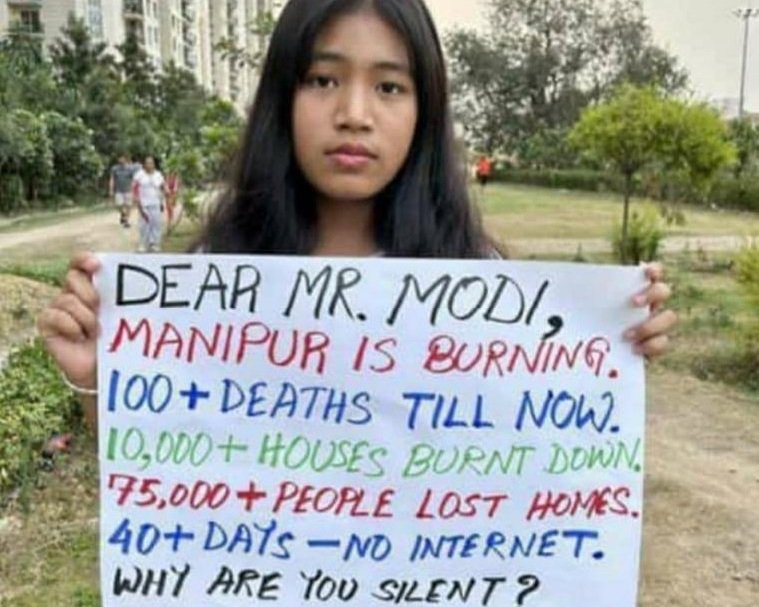 DEAR MR. MODI,
MANIPUR IS BURNING.
100+ DEATHS TILL NOW.
10,000+ HOUSES BURNT DOWN.
75,000+ PEOPLE LOST HOMES.
40+ DAYS – NO INTERNET.
WHY ARE YOU SILENT?